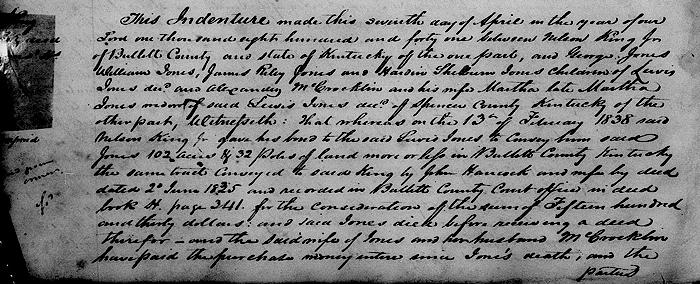 This Indenture made this seventh day of April in the year of our
Lord one thousand eight hundred and forty one between Nelson King Jr
of Bullitt County and state of Kentucky of the one part, and George Jones
William Jones, James Riley Jones and Hardin Shelburn Jones children of Lewis
Jones decd and Alexander McCrocklin and his wife Martha late Martha
Jones widow of said Lewis Jones decd of Spencer County Kentucky of the
other part, Witnesseth: That whereas on the 13th of February 1838 said
Nelson King Jr gave his bond to the said Lewis Jones to convey him said
Jones 102 acres & 32 Poles of land more or less in Bullitt County Kentucky
the same tract conveyed to said King by John Hancock and wife by deed
dated 2d June 1835 and recorded in Bullitt County Court office in deed
book H. page 241. for the consideration of the sum of Fifteen hundred
and thirty dollars; and said Jones died before receiving a deed
therefor - and the said wife of Jones and her husband McCrocklin
have paid the purchase money entire since Jones death; and the
parties